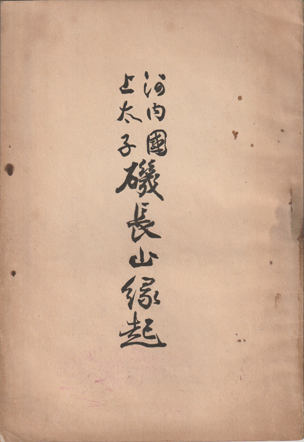 河内國
上太子
磯長山縁起